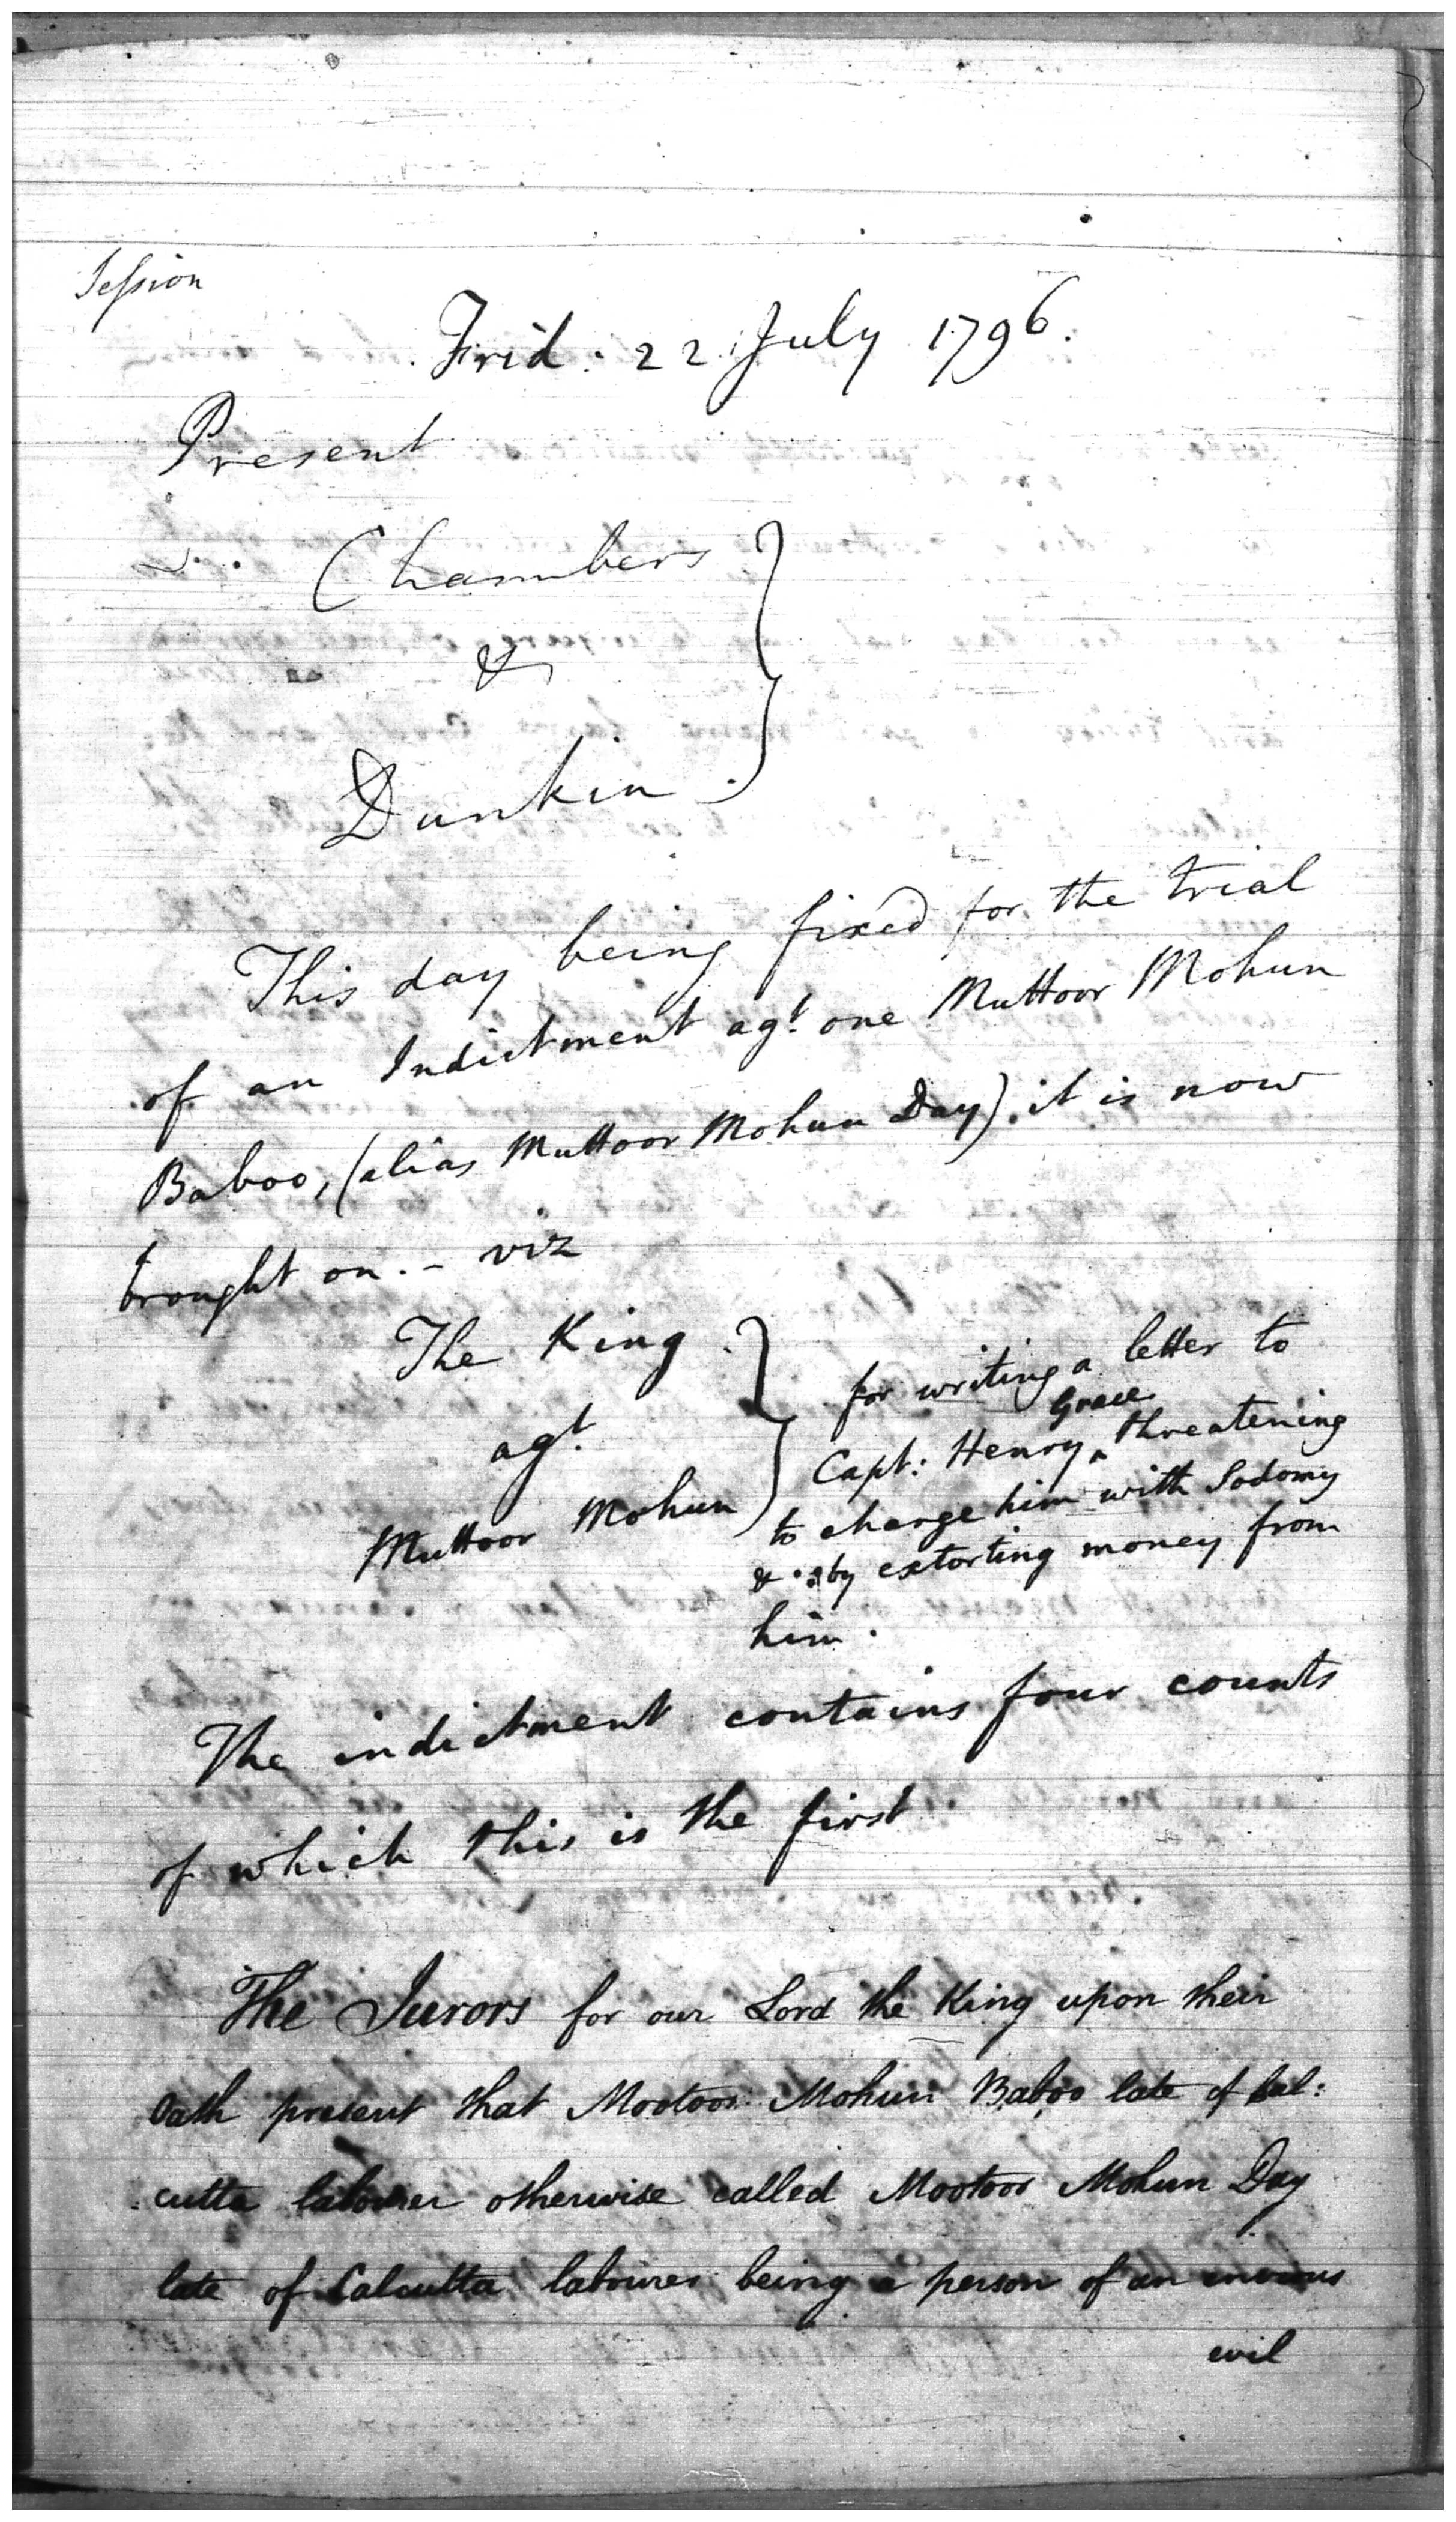 Session
Frid. 22 July 1796.
Present
Chambers
&
Dunkin.
This day being fixed for the trial
of an Indictment agt. one Muttoor Mohun
Baboo, (alias Muttoor Mohun Day), it is now
brought on. - viz
The King
agt.
Muttoor Mohun
for writing a letter to
Grace
Capt: Henry ^ threatening
to charge him with Sodomy
& by extorting money from
him.
The indictment contains four counts
of which this is the first
The Jurors for our Lord the King upon their
Oath present that Mootoor Mohun Baboo late of Cal:
cutta labourer otherwise called Mootoor Mohun Day
late of Calcutta labourer being a person of an
evil